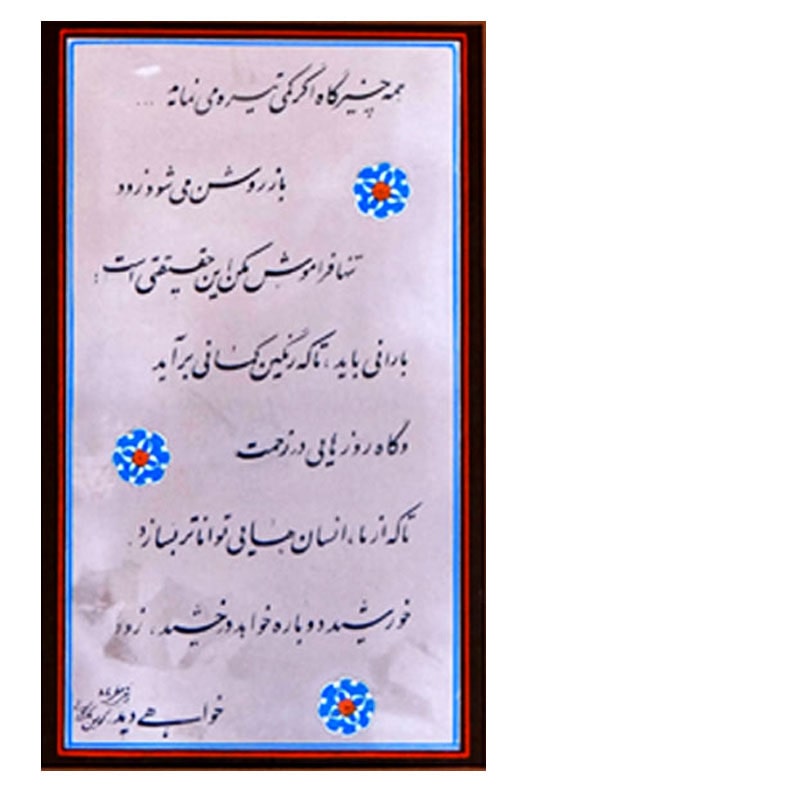 همه چیز گاه اگر کمی تیره می نماید ...
باز روشن می شود زود
تنها فراموش مکن این حقیقتی است :
بارانی باید ، تا که رنگین کمانی برآید
و گاه روزهایی در زحمت
تا که از ما ، انسان هایی تواناتر بسازد .
خورشید دوباره خواهد درخشید ، زود
خواهی دید .